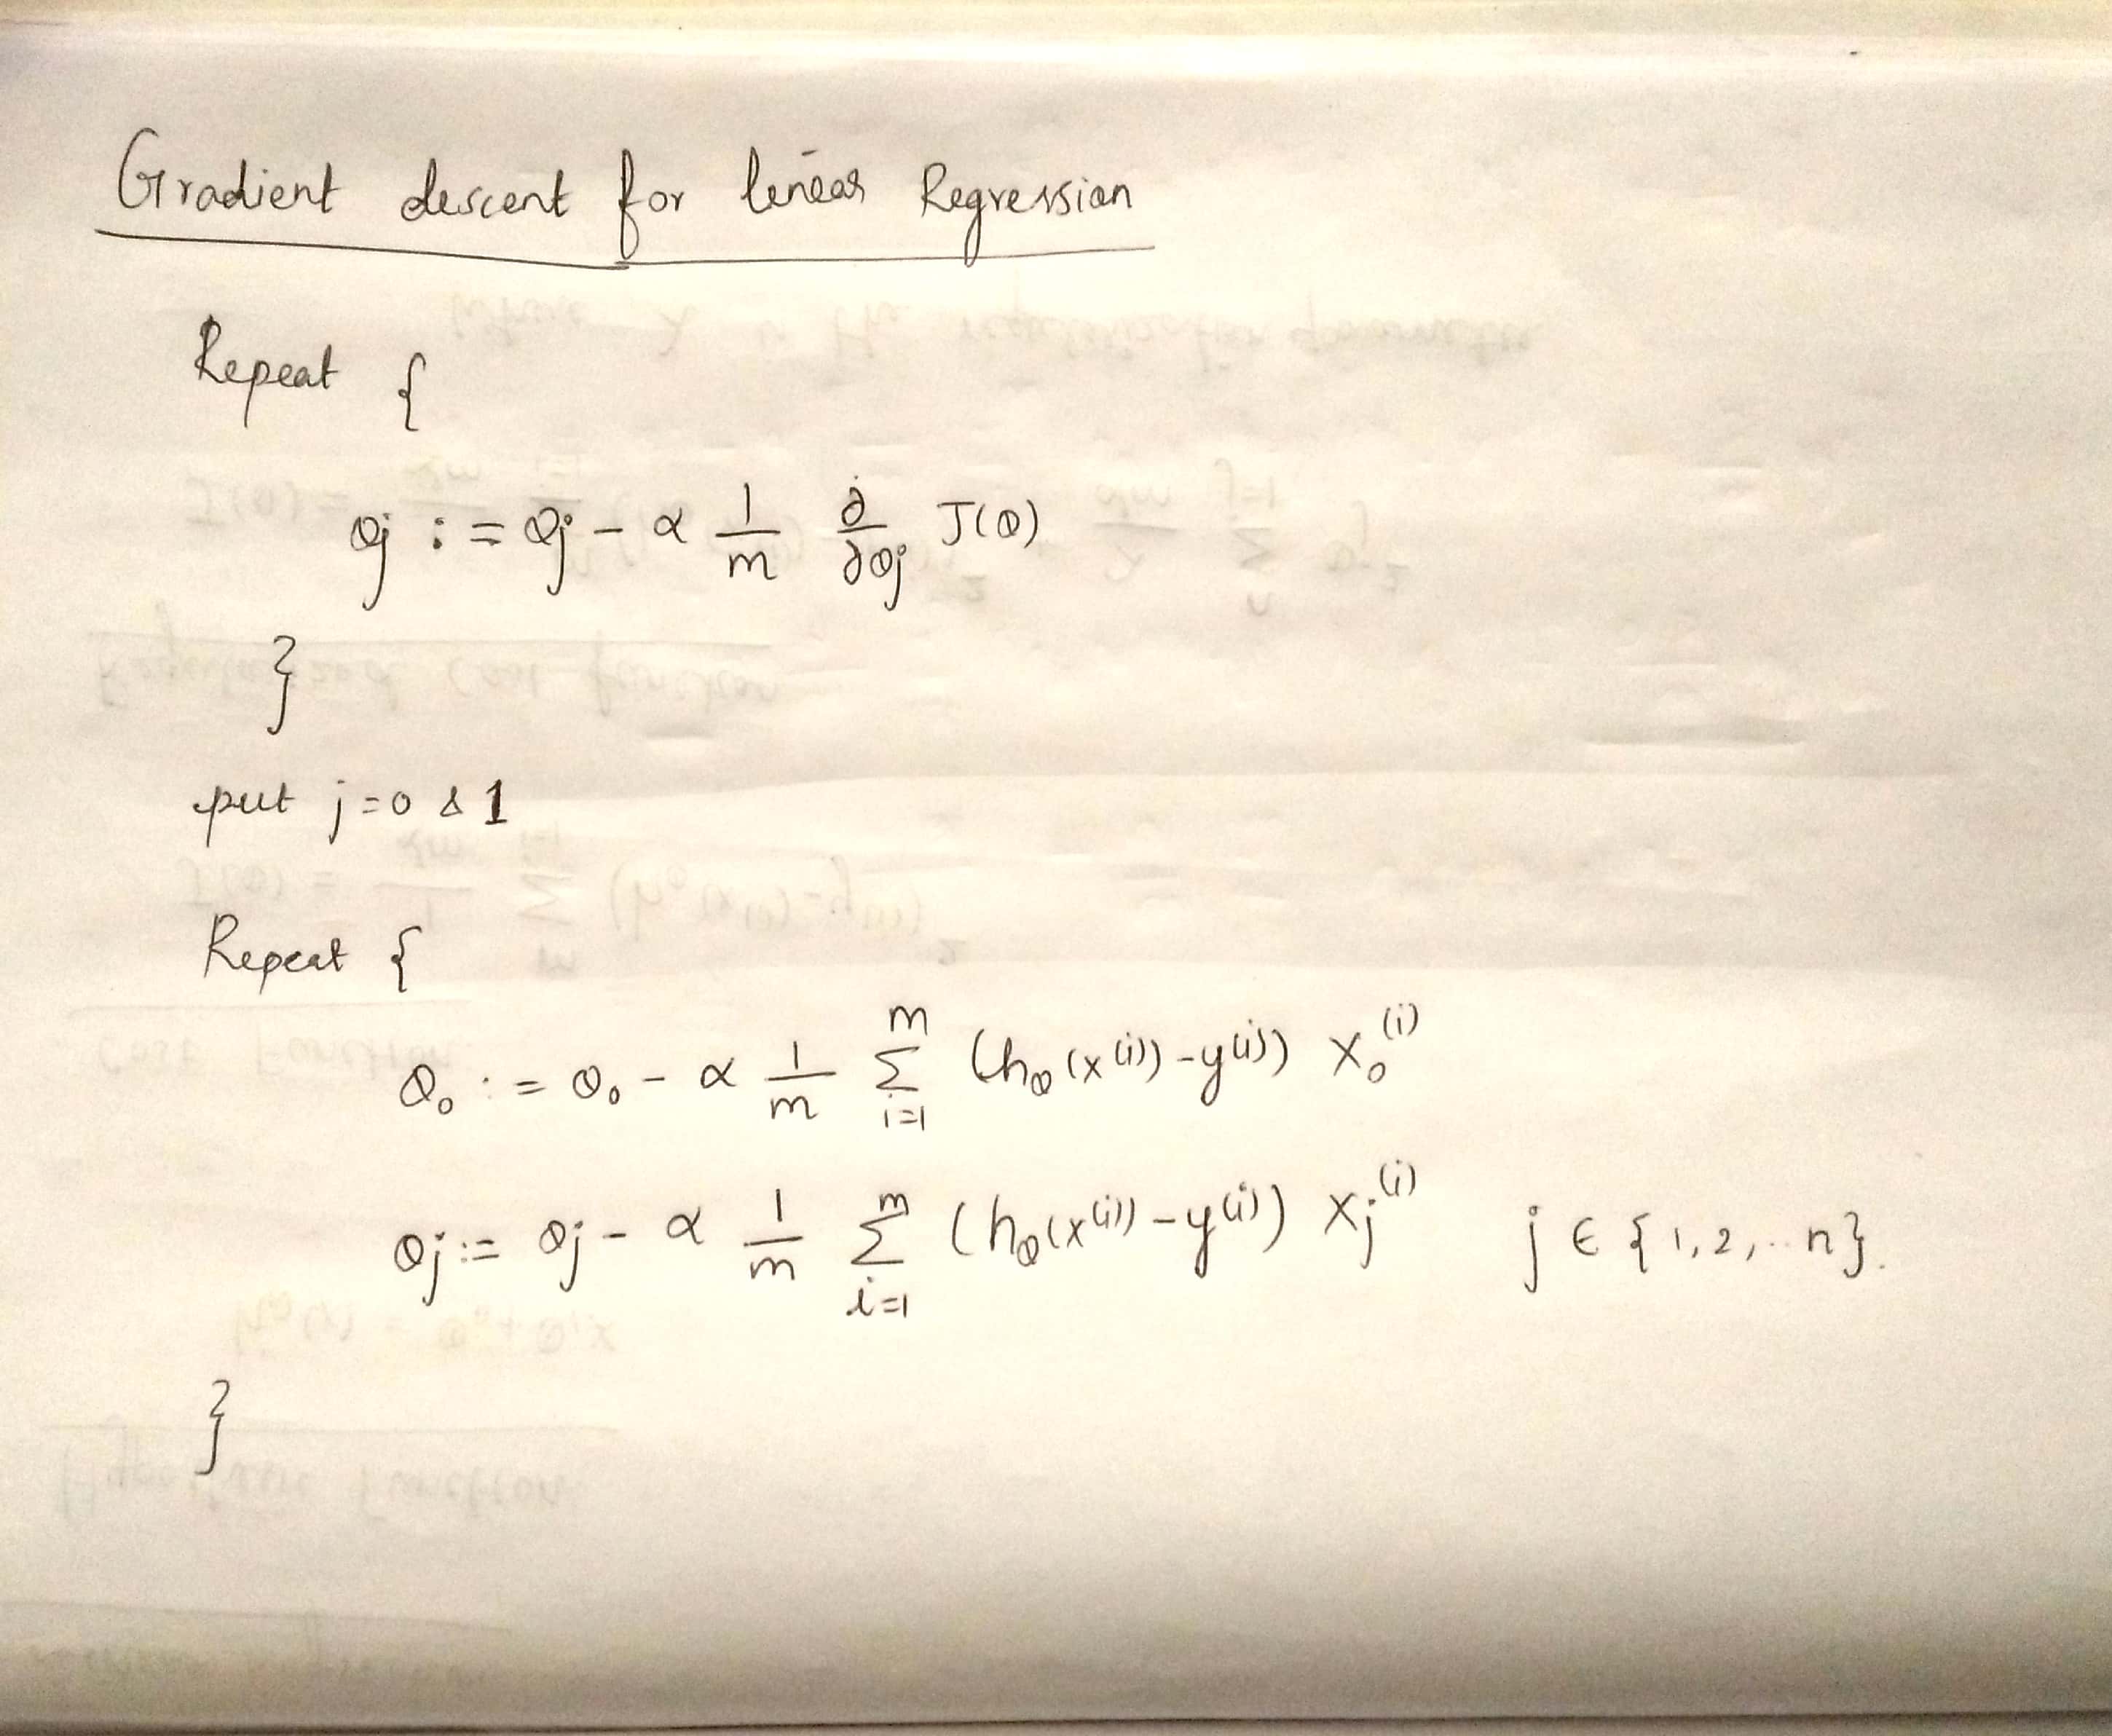 Gradient descent for linear Regression
Repeat {
θj := θj - α 1/m ∂/∂θj J(θ)
}
put j=0 & 1
Repeat {
θ₀ := θ₀ - α 1/m Σ_{i=1}^{m} (hθ(x⁽ⁱ⁾) - y⁽ⁱ⁾) x₀⁽ⁱ⁾
θj := θj - α 1/m Σ_{i=1}^{m} (hθ(x⁽ⁱ⁾) - y⁽ⁱ⁾) xj⁽ⁱ⁾ j ∈ {1,2,..n}.
}